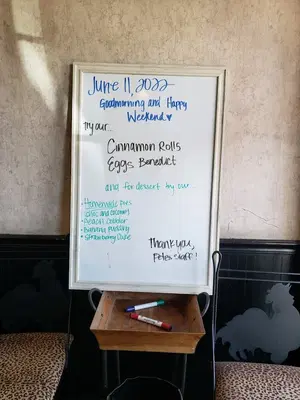 June 11, 2022
Goodmorning and Happy
Weekend
Try our...
Cinnamon Rolls
Eggs Benedict
and for dessert try our...
• Homemade Pies
• Peach Cobbler
• Banana Pudding
• Strawberry Cake
Thank you,
Petes staff!